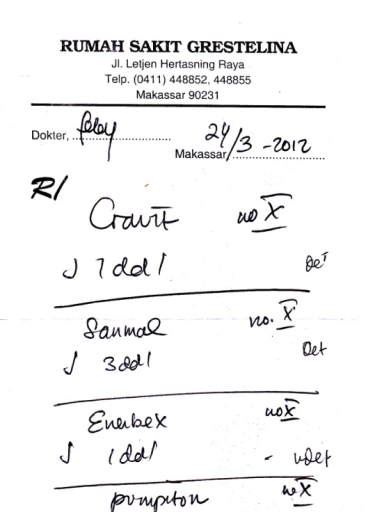 RUMAH SAKIT GRESTELINA
Jl. Letjen Hertasning Raya
Telp. (0411) 448852, 448855
Makassar 90231
Dokter, feby
Makassar, 24/3 - 2012
R/
Cravit no X
ʃ 1dd1 Det
Sanmol no. X
ʃ 3dd1 Det
Enerbex no X
ʃ 1dd1 - Det
no X